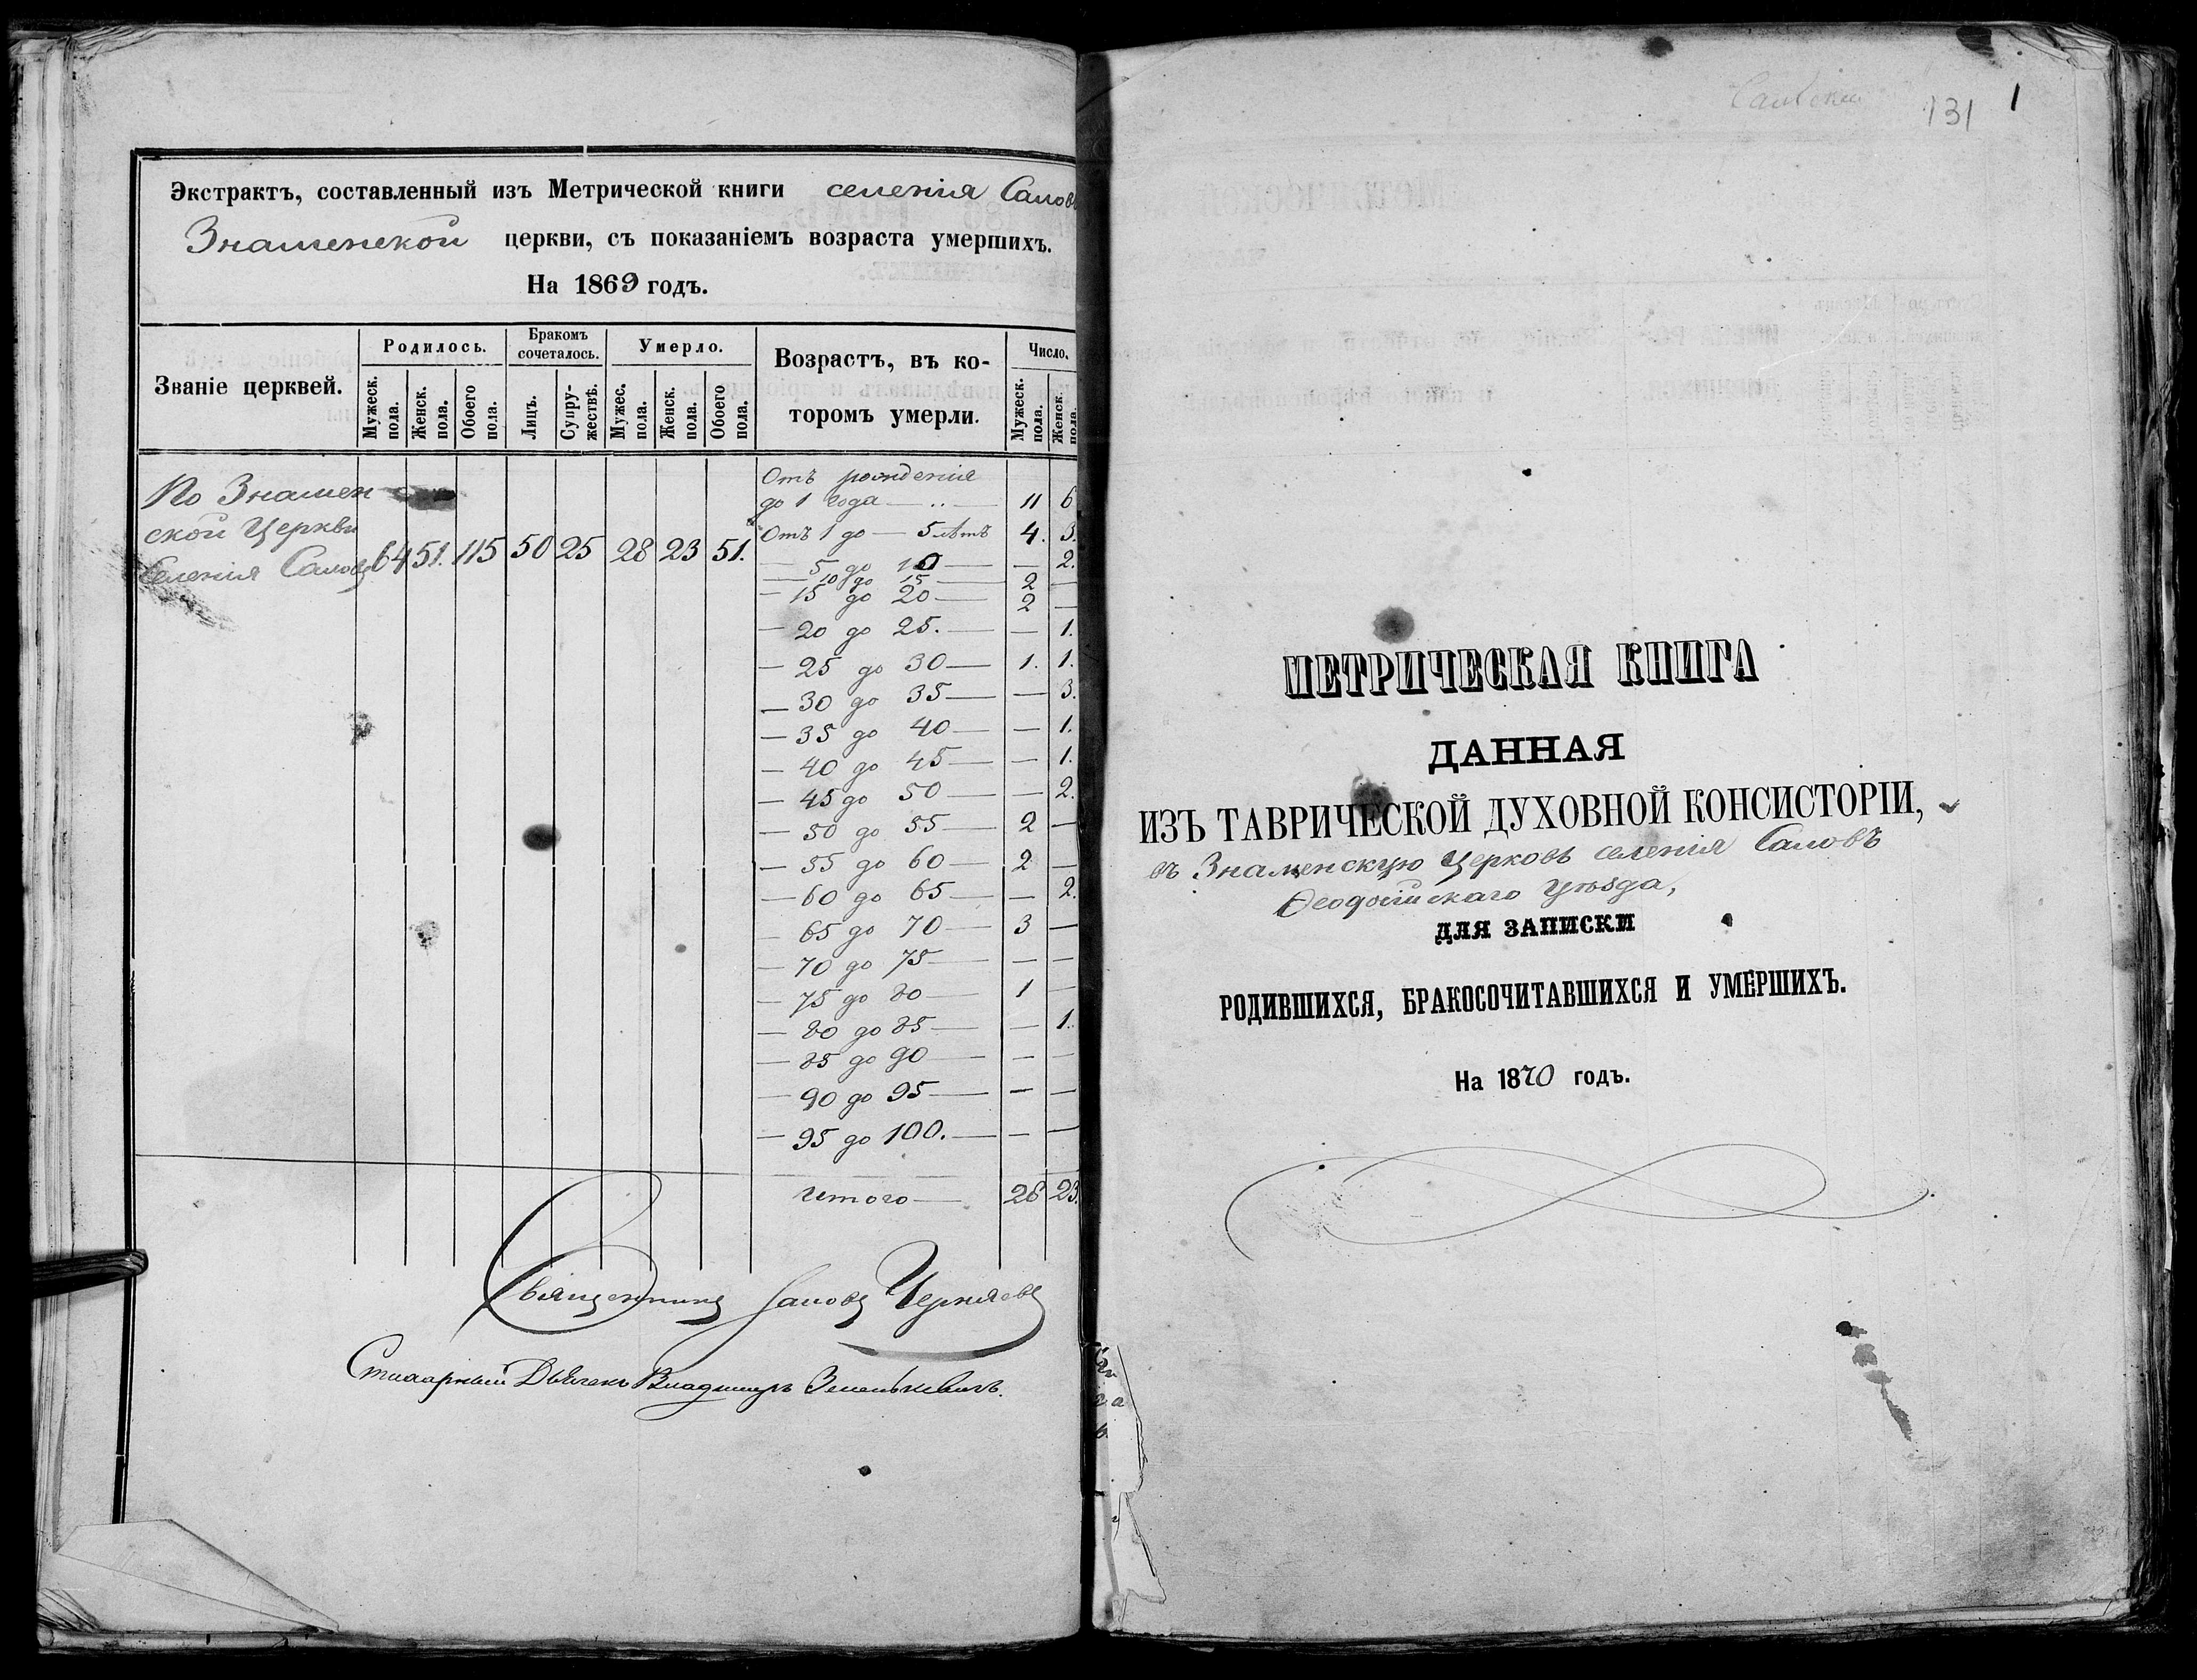 Экстрактъ, составленный изъ Метрической книги селенія Салов
Знаменской церкви, съ показаніемъ возраста умершихъ.
На 1869 годъ.
Званіе церквей.
Родилось.
Мужеск. пола.
Женск. пола.
Обоего пола.
Бракомъ сочеталось.
Лицъ.
Супружествъ.
Умерло.
Мужес. пола.
Женск. пола.
Обоего пола.
Возрастъ, въ ко-
торомъ умерли.
Число.
Мужеск. пола.
Женск. пола.
По Знамен
ской Церкви
Селенія Саловъ 64 51. 115 50 25 28 23 51.
Отъ рожденія
до 1 года — .. — 11 6
Отъ 1 до — 5 лѣтъ 4. 3.
— 5 до 10 — — 2.
— 10 до 15 — 2 —
— 15 до 20 — 2 —
— 20 до 25. — — 1.
— 25 до 30 — 1. 1.
— 30 до 35 — — 3.
— 35 до 40 — — 1.
— 40 до 45 — — 1.
— 45 до 50 — — 2.
— 50 до 55 — 2 —
— 55 до 60 — 2 —
— 60 до 65 — — 2.
— 65 до 70 — 3 —
— 70 до 75 — — —
— 75 до 80 — 1 —
— 80 до 85 — — 1.
— 85 до 90 — — —
— 90 до 95 — — —
— 95 до 100. — — —
Итого — 28 23.
Священникъ Іаковъ Черняевъ
Стихарный Дьячекъ Владимиръ
131 1
МЕТРИЧЕСКАЯ КНИГА
ДАННАЯ
ИЗЪ ТАВРИЧЕСКОЙ ДУХОВНОЙ КОНСИСТОРІИ,
въ Знаменскую Церковь селенія Саловъ
Ѳеодосійскаго уѣзда,
ДЛЯ ЗАПИСКИ
РОДИВШИХСЯ, БРАКОСОЧИТАВШИХСЯ И УМЕРШИХЪ.
На 1870 годъ.